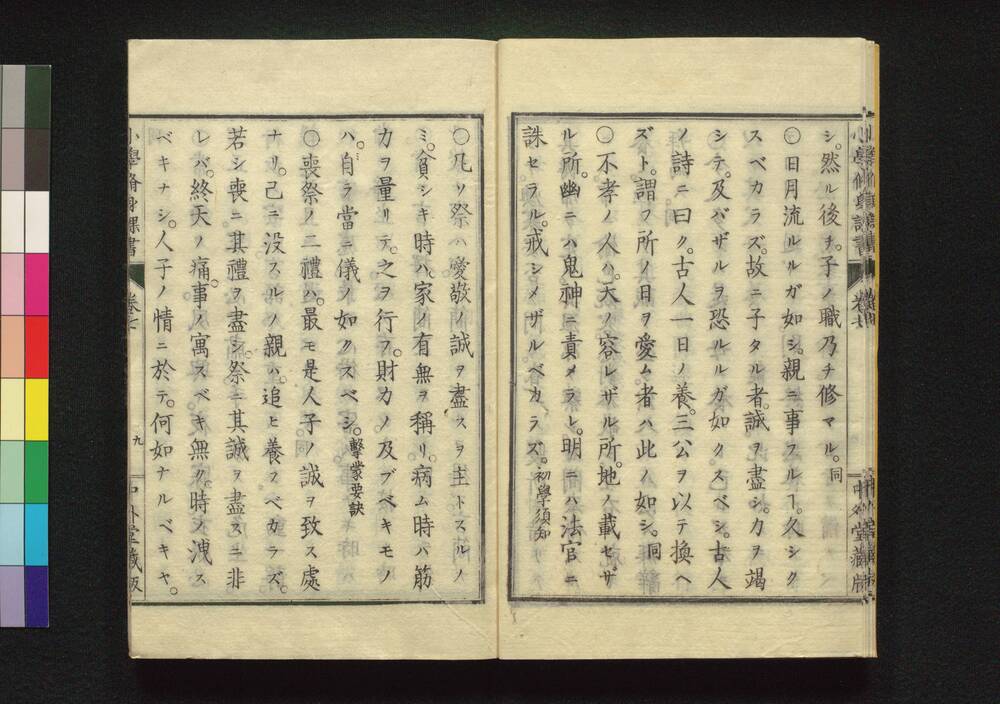 小學修身課書 卷七 中外堂藏版
シ。然ル後チ。子ノ職乃チ修マル。同
〇日月流ルルガ如シ。親ニ事フルヿ。久シク
スベカラズ。故ニ子タル者。誠ヲ盡シ。力ヲ竭
シテ。及バザルヲ恐ルルガ如クスベシ。古人
ノ詩ニ曰ク。古人一日ノ養。三公ヲ以テ換ヘ
ズト。謂フ所ノ日ヲ愛ム者ハ此ノ如シ。同
〇不孝ノ人ハ。天ノ容レザル所。地ノ載セザ
ル所。幽ニハ鬼神ニ責メラレ。明ニハ法官ニ
誅セラル。戒シメザルベカラズ。初學須知
〇凡ソ祭ハ愛敬ノ誠ヲ盡スヲ主トスルノ
ミ。貧シキ時ハ。家ノ有無ヲ稱リ。病ム時ハ筋
力ヲ量リテ。之ヲ行フ。財力ノ及ブベキモノ
ハ。自ラ當ニ儀ノ如クスベシ。擊蒙要訣
〇喪祭ノ二禮ハ。最モ是人子ノ誠ヲ致ス處
ナリ。已ニ没スルノ親ハ。追ヒ養フベカラズ。
若シ喪ニ其禮ヲ盡シ。祭ニ其誠ヲ盡スニ非
レバ。終天ノ痛。事ノ寓スベキ無ク。時ノ洩ス
ベキナシ。人子ノ情ニ於テ。何如ナルベキヤ。
小學脩身課書 卷七 九 中外堂藏版